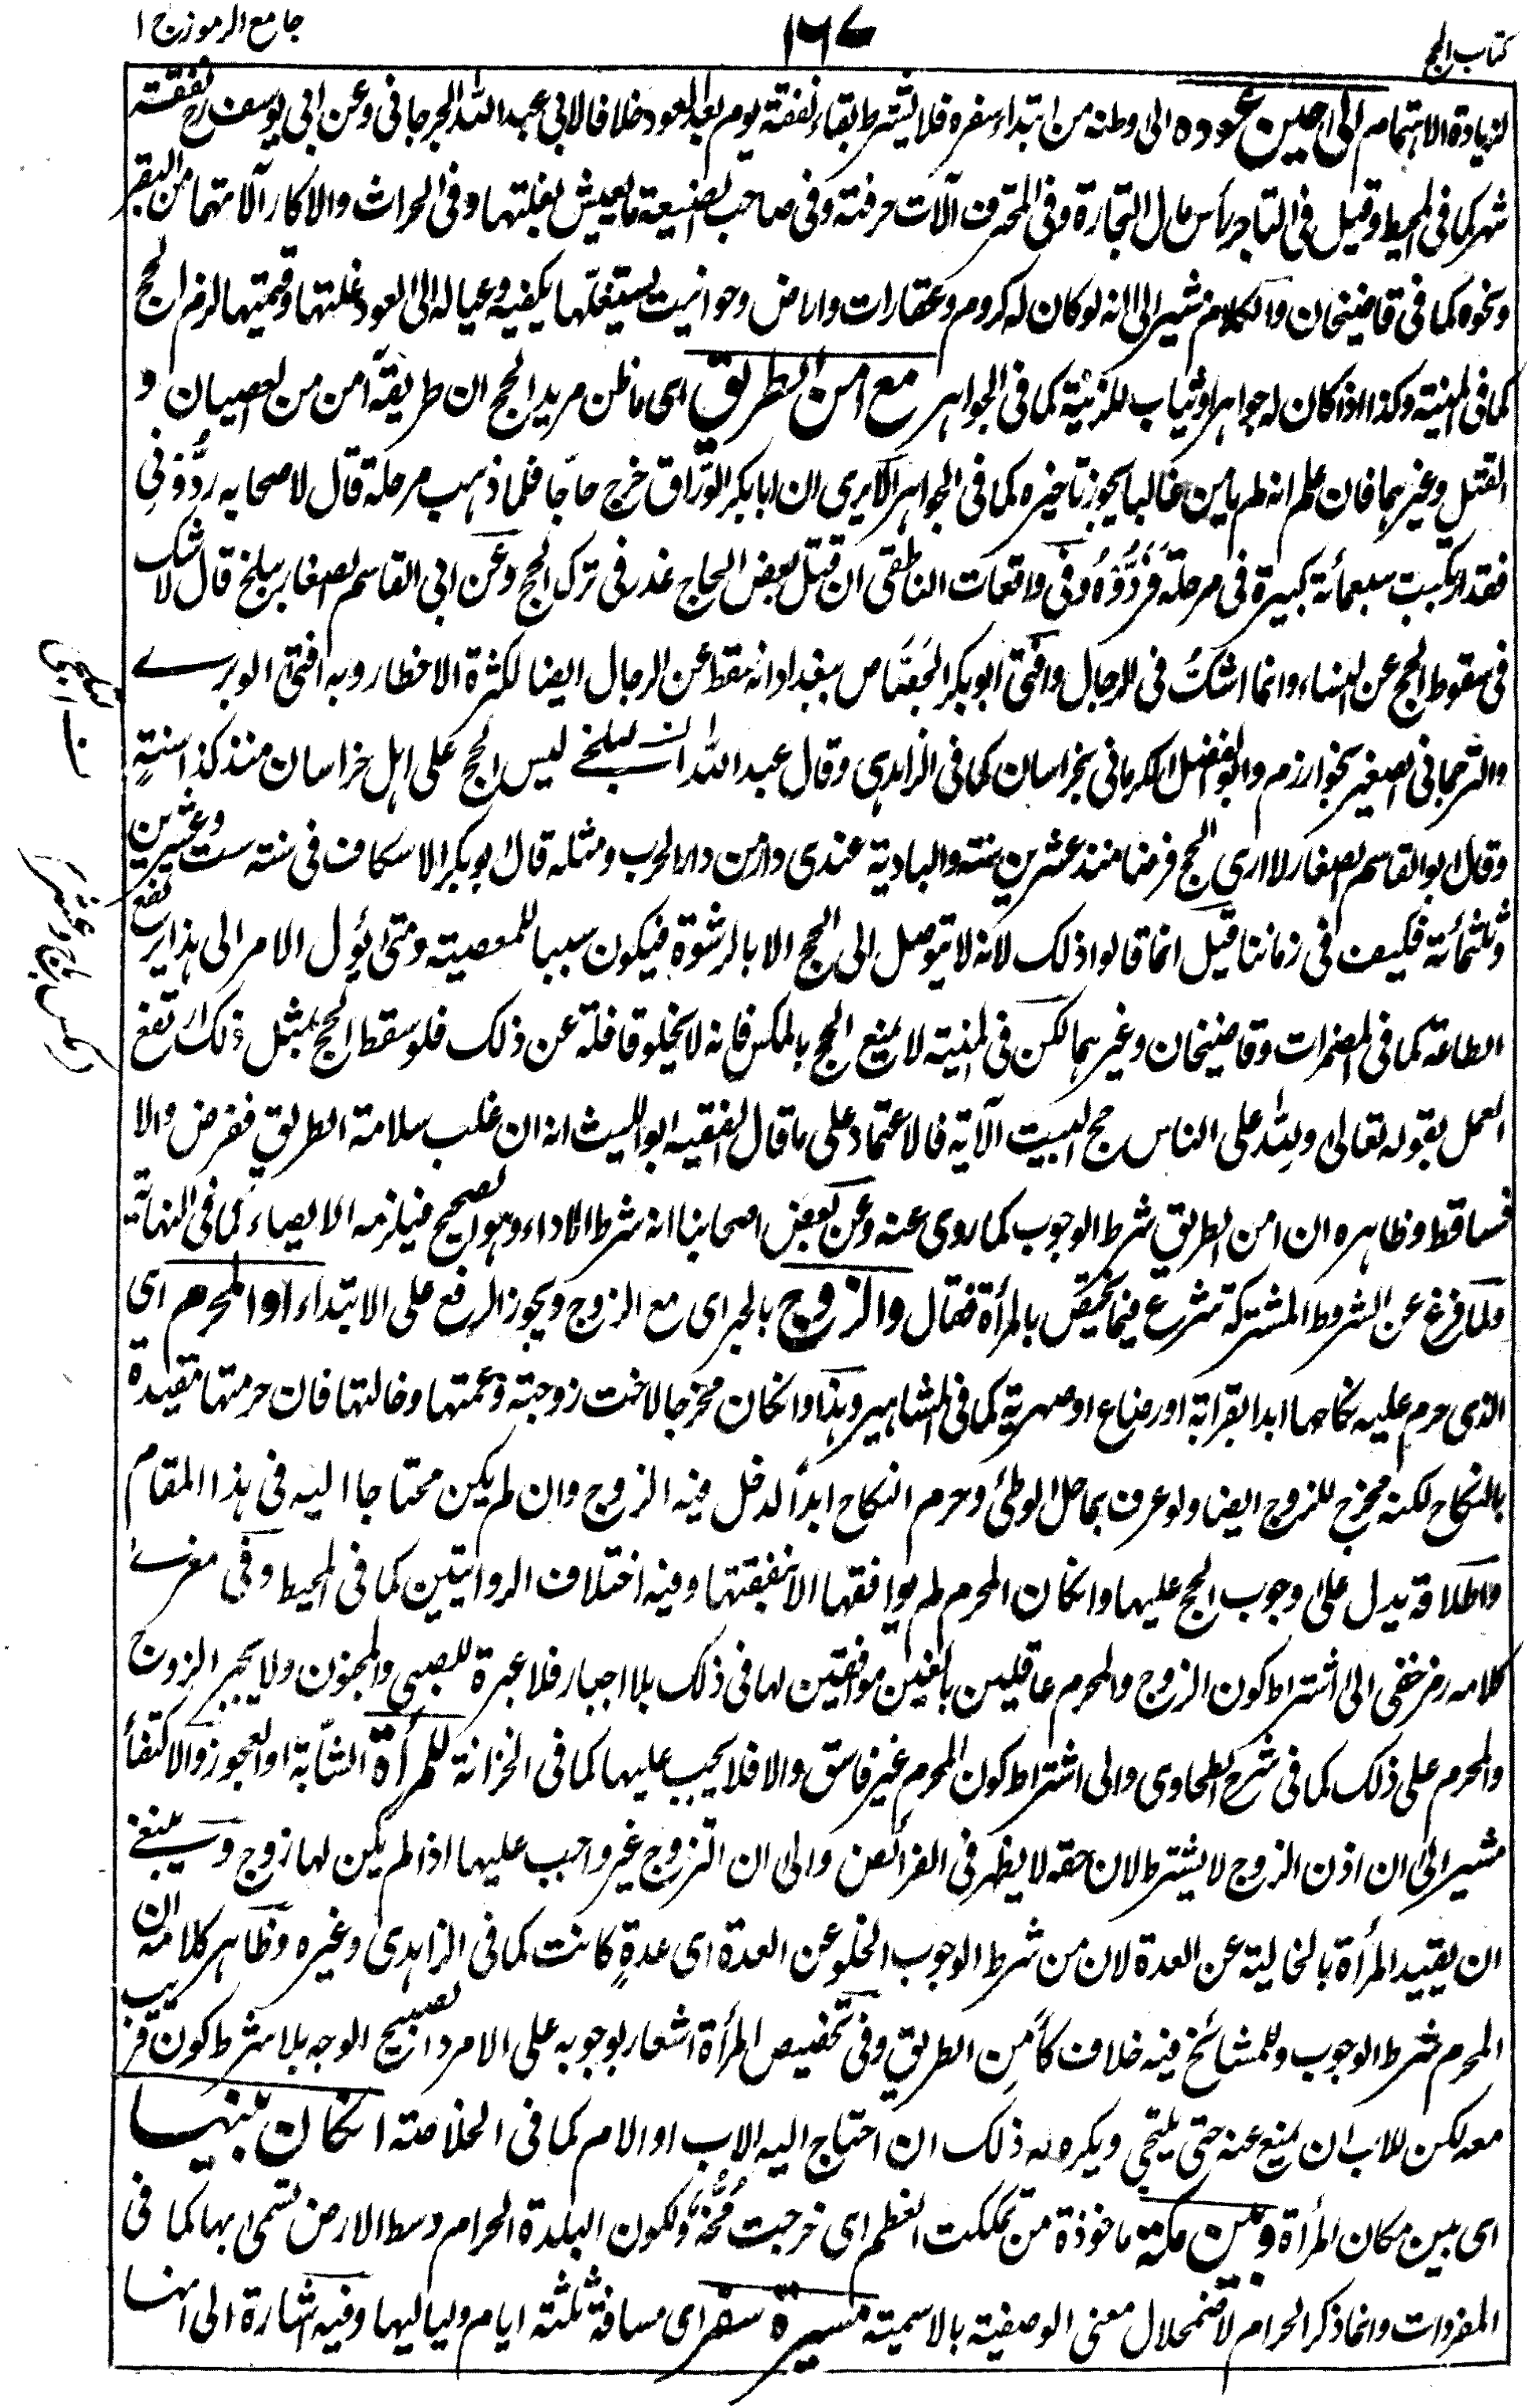 كتاب الحج
١٦٧
جامع الرموز ج ١
لزيادة الاهتمام الى حين عوده الى وطنه من ابتداء سفره فلا يشترط بقاء نفقة يوم بعد العود خلافا لابى عبد الله الجرجانى وعن ابى يوسف رح نفقته
شهر كما فى المحيط وقيل فى التاجر رأس مال التجارة وفى المحترف آلات حرفته وفى صاحب الضيعة ما يعيش بغلتها وفى الحراث والاكار آلاتهما من البقر
ونحوه كما فى قاضيخان والكلام مشير الى انه لو كان له كروم وعقارات واراض وحوانيت يستغلها يكفيه وعياله الى العود غلتها وقيمتها لزم الحج
كما فى المنية وكذا اذا كان له جواهر او ثياب للزينة كما فى الجواهر مع امن الطريق اى ما ظن مريد الحج ان طريقه آمن من العصيان و
القتل وغيرهما فان علم انه لم يأمن غالبا يجوز تاخيره كما فى الجواهر الا يرى ان ابا بكر الوراق خرج حاجا فلما ذهب مرحلة قال لاصحابه ردونى
فقد ارتكبت سبعمائة كبيرة فى مرحلة فردوه وفى واقعات الناطقى ان قتل بعض الحاج عذر فى ترك الحج وعن ابى القاسم الصفار ببلخ قال لا شك
فى سقوط الحج عن النساء وانما اشك فى الرجال وافتى ابو بكر الجصاص ببغداد انه سقط عن الرجال ايضا لكثرة الاخطار وبه افتى الوبرى
والترجمانى الصغير بخوارزم وابو الفضل الكرمانى بخراسان كما فى الزاهدى وقال عبد الله البلخى ليس الحج على اهل خراسان منذ كذا سنة
وقال ابو القاسم الصفار لا ارى الحج فرضا منذ عشرين سنة والبادية عندى دار من دار الحرب ومثله قال ابو بكر الاسكاف فى سنة ست وعشرين
وثلثمائة فكيف فى زماننا قيل انما قالوا ذلك لانه لا يتوصل الى الحج الا بالرشوة فيكون سببا للمعصية ومتى يؤل الامر الى هذا يرتفع
الطاعة كما فى المضمرات وقاضيخان وغيرهما لكن فى المنية لا يمنع الحج بالمكس فانه لا يخلو قافلة عن ذلك فلو سقط الحج بمثل ذلك ارتفع
العمل بقوله تعالى ولله على الناس حج البيت الآية فالاعتماد على ما قال الفقيه ابو الليث انه ان غلب سلامة الطريق ففرض والا
فساقط وظاهره ان امن الطريق شرط الوجوب كما روى عنه وعن بعض اصحابنا انه شرط الاداء وهو الصحيح فيلزمه الايصاء كما فى النهاية
ولما فرغ عن الشروط المشتركة شرع فيما يختص بالمرأة فقال والزوج بالجر اى مع الزوج ويجوز الرفع على الابتداء او المحرم اى
الذى حرم عليه نكاحها ابدا بقرابة او رضاع او صهرية كما فى المشاهير وهذا وانكان مخرجا لاخت زوجته وعمتها وخالتها فان حرمتها مقيدة
بالنكاح لكنه مخرج للزوج ايضا ولو عرف بما حل الوطى وحرم النكاح ابدا لدخل فيه الزوج وان لم يكن محتاجا اليه فى هذا المقام
واطلاقه يدل على وجوب الحج عليها وانكان المحرم لم يوافقها الا بنفقتها وفيه اختلاف الروايتين كما فى المحيط وفى مغزى
كلامه رمز خفى الى اشتراط كون الزوج والمحرم عاقلين بالغين موافقين لها فى ذلك بلا اجبار فلا عبرة للصبى والمجنون ولا يجبر الزوج
والمحرم على ذلك كما فى شرح الطحاوى والى اشتراط كون المحرم غير فاسق والا فلا يجب عليها كما فى الخزانة للمرأة الشابة او العجوز والاكتفاء
مشير الى ان اذن الزوج لا يشترط لان حقه لا يظهر فى الفرائض والى ان التزوج غير واجب عليها اذا لم يكن لها زوج وينبغى
ان يقيد المرأة بالخالية عن العدة لان من شرط الوجوب الخلو عن العدة اى عدة كانت كما فى الزاهدى وغيره وظاهر كلامه ان
المحرم شرط الوجوب وللمشائخ فيه خلاف كأمن الطريق وفى تخصيص المرأة اشعار بوجوبه على الامرد الصبيح الوجه بلا شرط كون قريب
معه لكن للاب ان يمنع عنه حتى يلتحى ويكره له ذلك ان احتاج اليه الاب او الام كما فى الخلاصة انكان بينها
اى بين مكان المرأة وبين مكة ماخوذة من تمككت العظم اى خرجت مخه ولكون البلدة الحرام وسط الارض تسمى بها كما فى
المفردات وانما ذكر الحرام لاضمحلال معنى الوصفية بالاسمية مسيرة سفر اى مسافة ثلثة ايام ولياليها وفيه اشارة الى انها